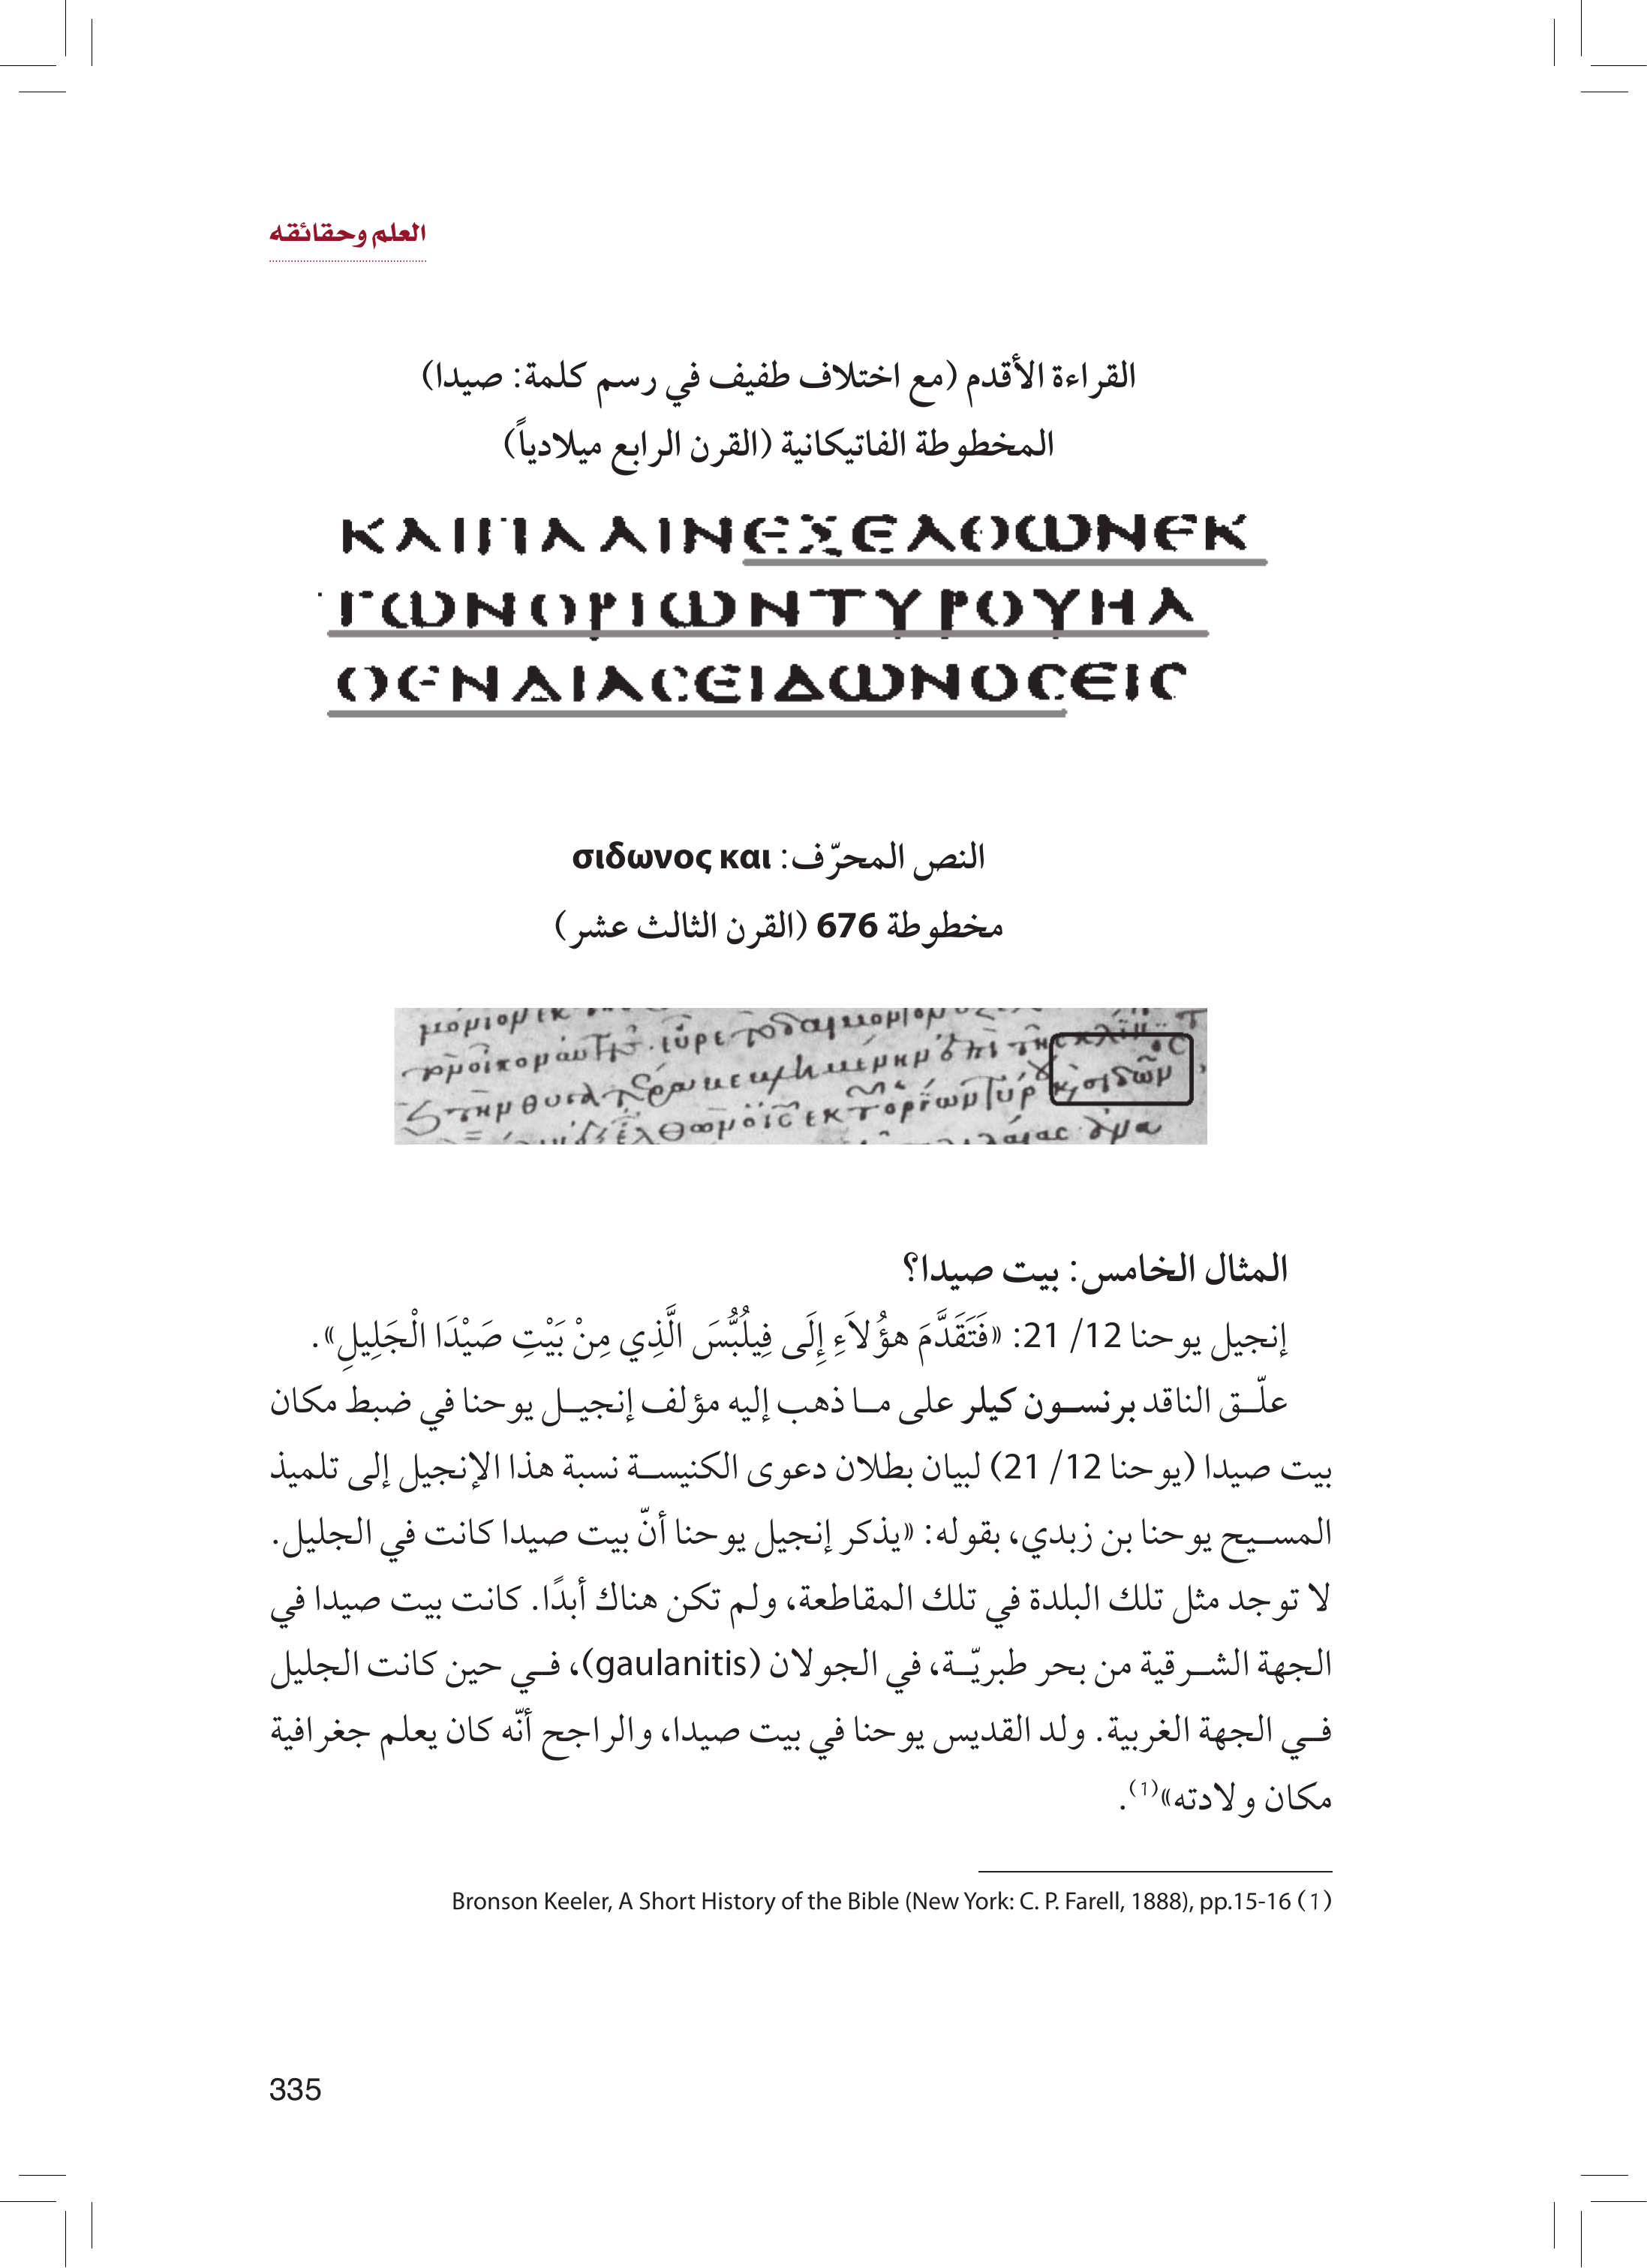 العلم وحقائقه
القراءة الأقدم (مع اختلاف طفيف في رسم كلمة: صيدا)
المخطوطة الفاتيكانية (القرن الرابع ميلادياً)
ΚΑΙΠΑΛΙΝΕΞΕΛΘΩΝΕΚ
ΤΩΝΟΡΙΩΝΤΥΡΟΥΗΛ
ΘΕΝΔΙΑϹΕΙΔΩΝΟϹΕΙϹ
النص المحرّف: σιδωνος και
مخطوطة 676 (القرن الثالث عشر)
المثال الخامس: بيت صيدا؟
إنجيل يوحنا 12/ 21: «فَتَقَدَّمَ هؤُلاَءِ إِلَى فِيلُبُّسَ الَّذِي مِنْ بَيْتِ صَيْدَا الْجَلِيلِ».
علّــق الناقد برنســون كيلر على مــا ذهب إليه مؤلف إنجيــل يوحنا في ضبط مكان
بيت صيدا (يوحنا 12/ 21) لبيان بطلان دعوى الكنيســة نسبة هذا الإنجيل إلى تلميذ
المســيح يوحنا بن زبدي، بقوله: «يذكر إنجيل يوحنا أنّ بيت صيدا كانت في الجليل.
لا توجد مثل تلك البلدة في تلك المقاطعة، ولم تكن هناك أبدًا. كانت بيت صيدا في
الجهة الشــرقية من بحر طبريّــة، في الجولان (gaulanitis)، فــي حين كانت الجليل
فــي الجهة الغربية. ولد القديس يوحنا في بيت صيدا، والراجح أنّه كان يعلم جغرافية
مكان ولادته»(1).
(1) Bronson Keeler, A Short History of the Bible (New York: C. P. Farell, 1888), pp.15-16
335